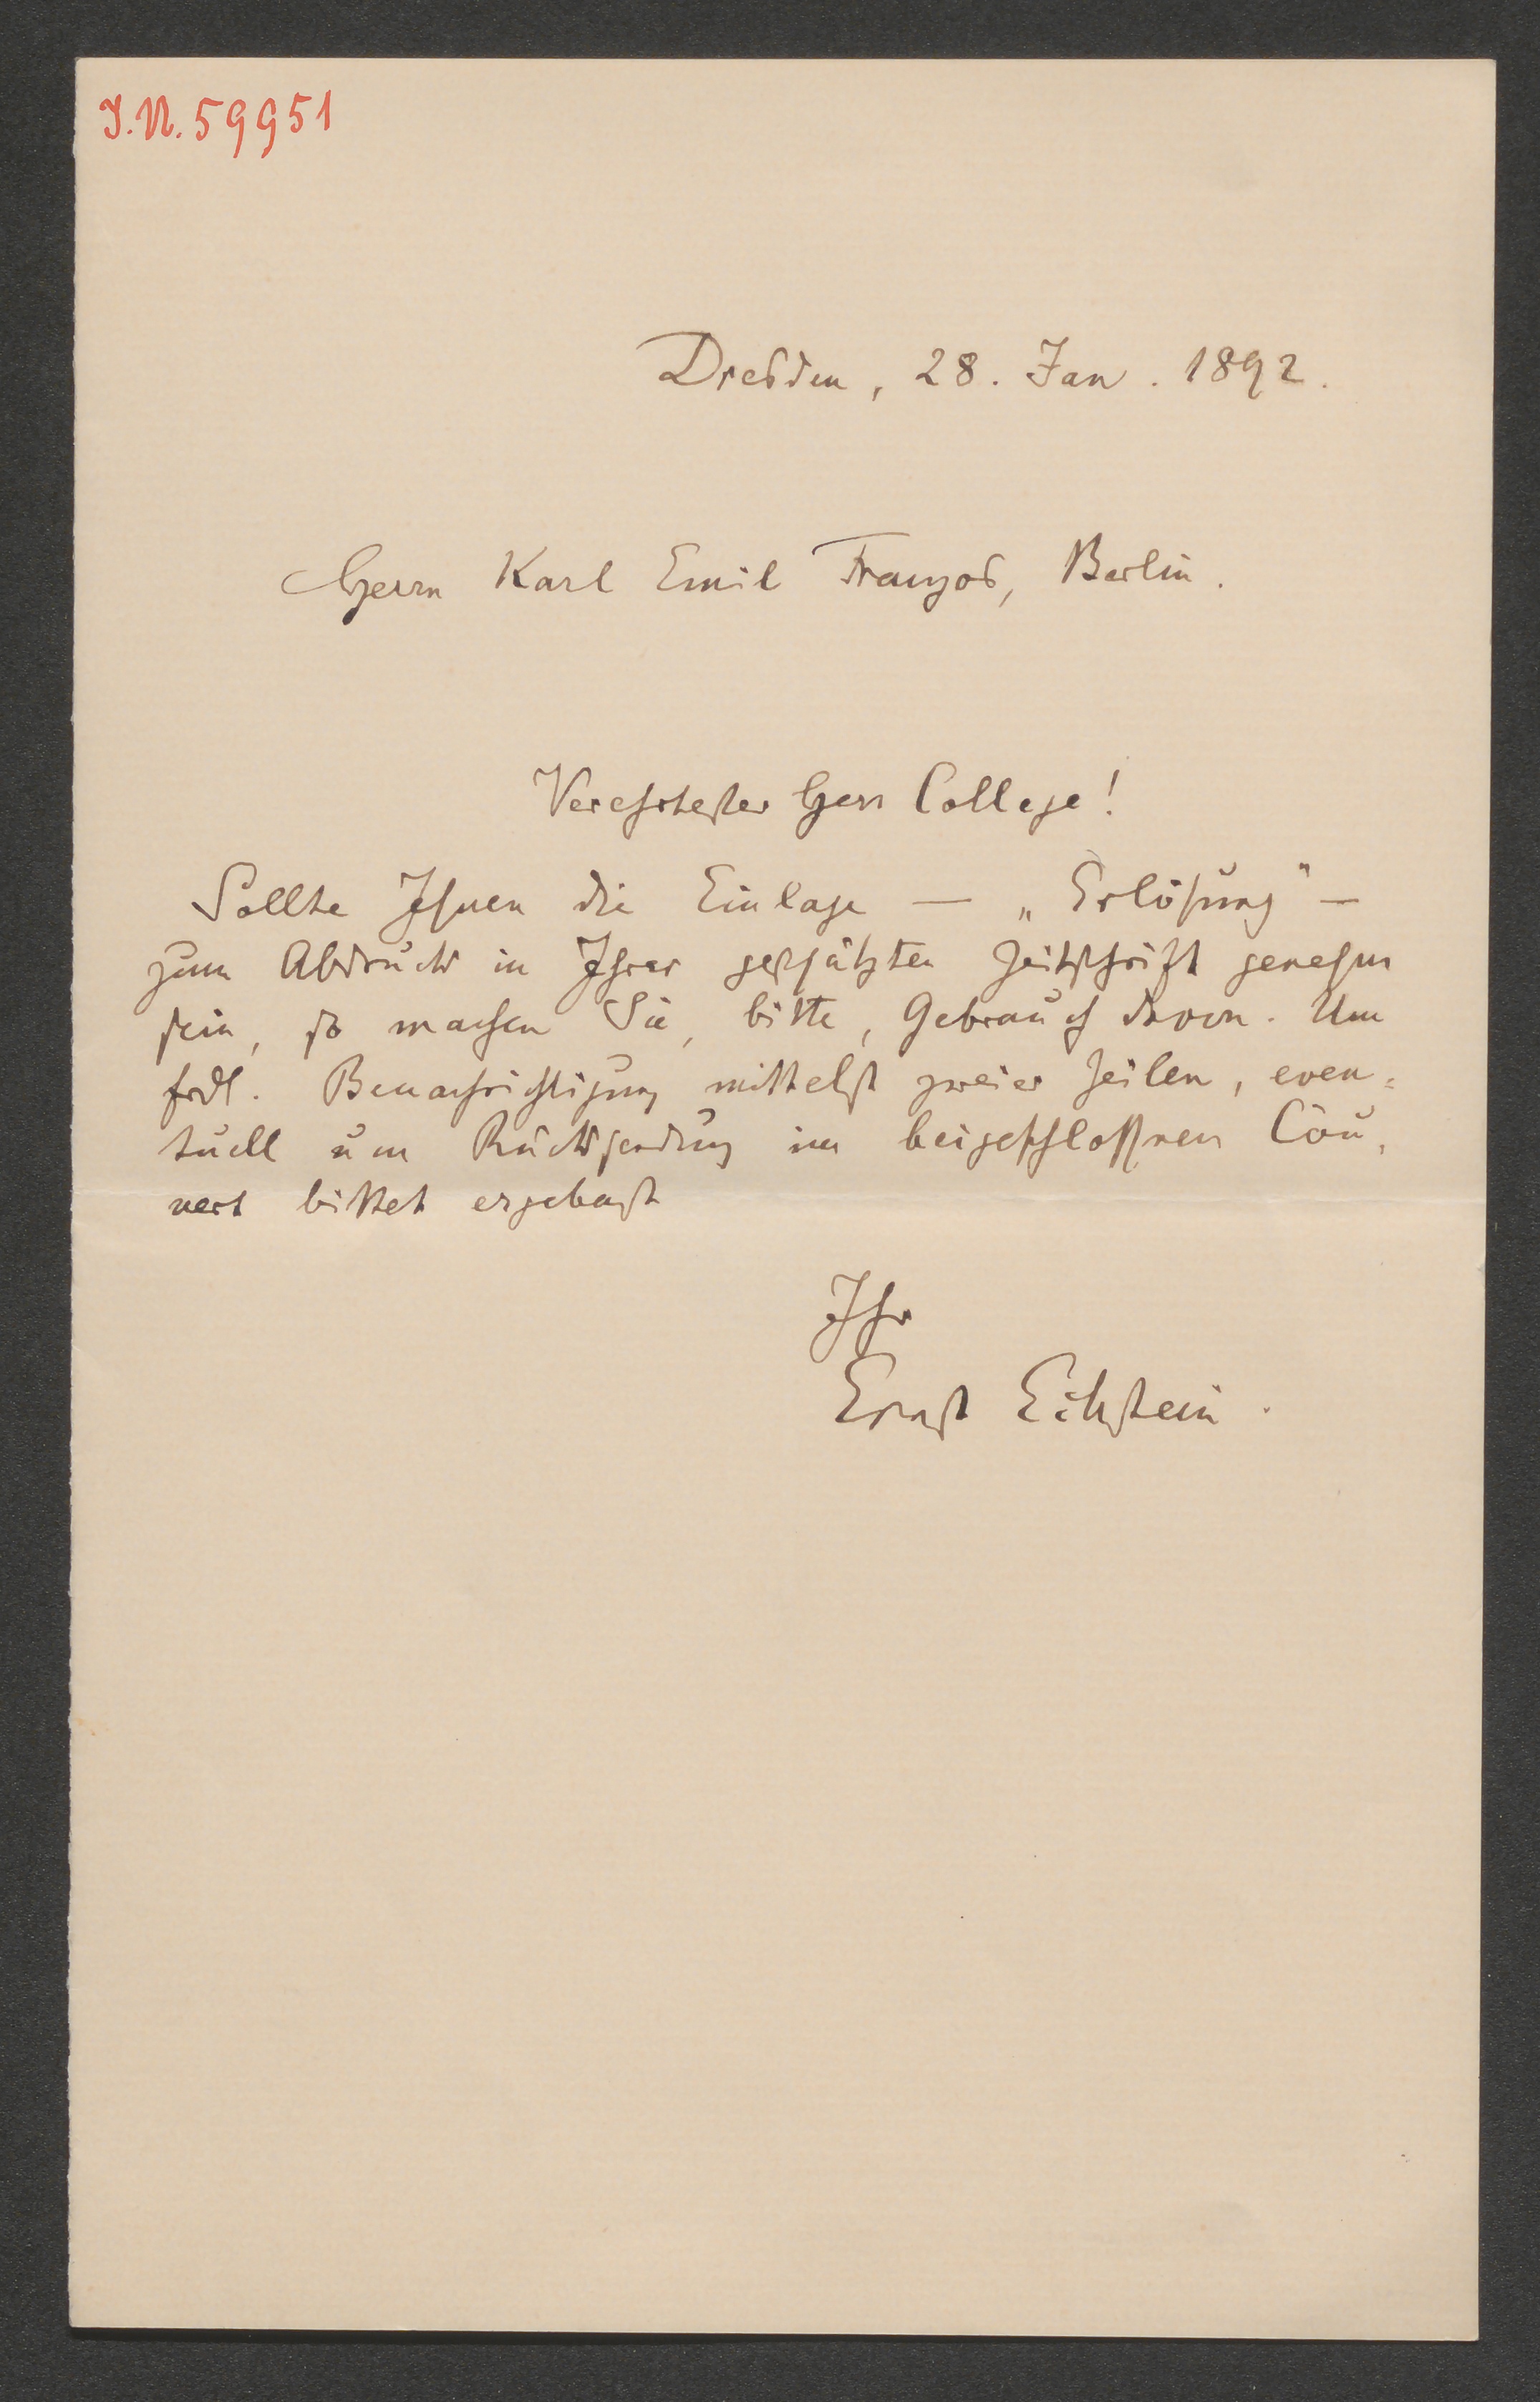 J.N. 59951
Dresden, 28. Jan. 1892.
Herrn Karl Emil Franzos, Berlin.
Verehrtester Herr College!
Sollte Ihnen die Einlage — „Erlösung" —
zum Abdruck in Ihrer geschätzten Zeitschrift genehm
sein, so machen Sie, bitte, Gebrauch davon. Um
frdl. Benachrichtigung mittelst zweier Zeilen, even-
tuell um Rücksendung im beigeschlossnen Cou-
vert bittet ergebenst
Ihr
Ernst Eckstein.